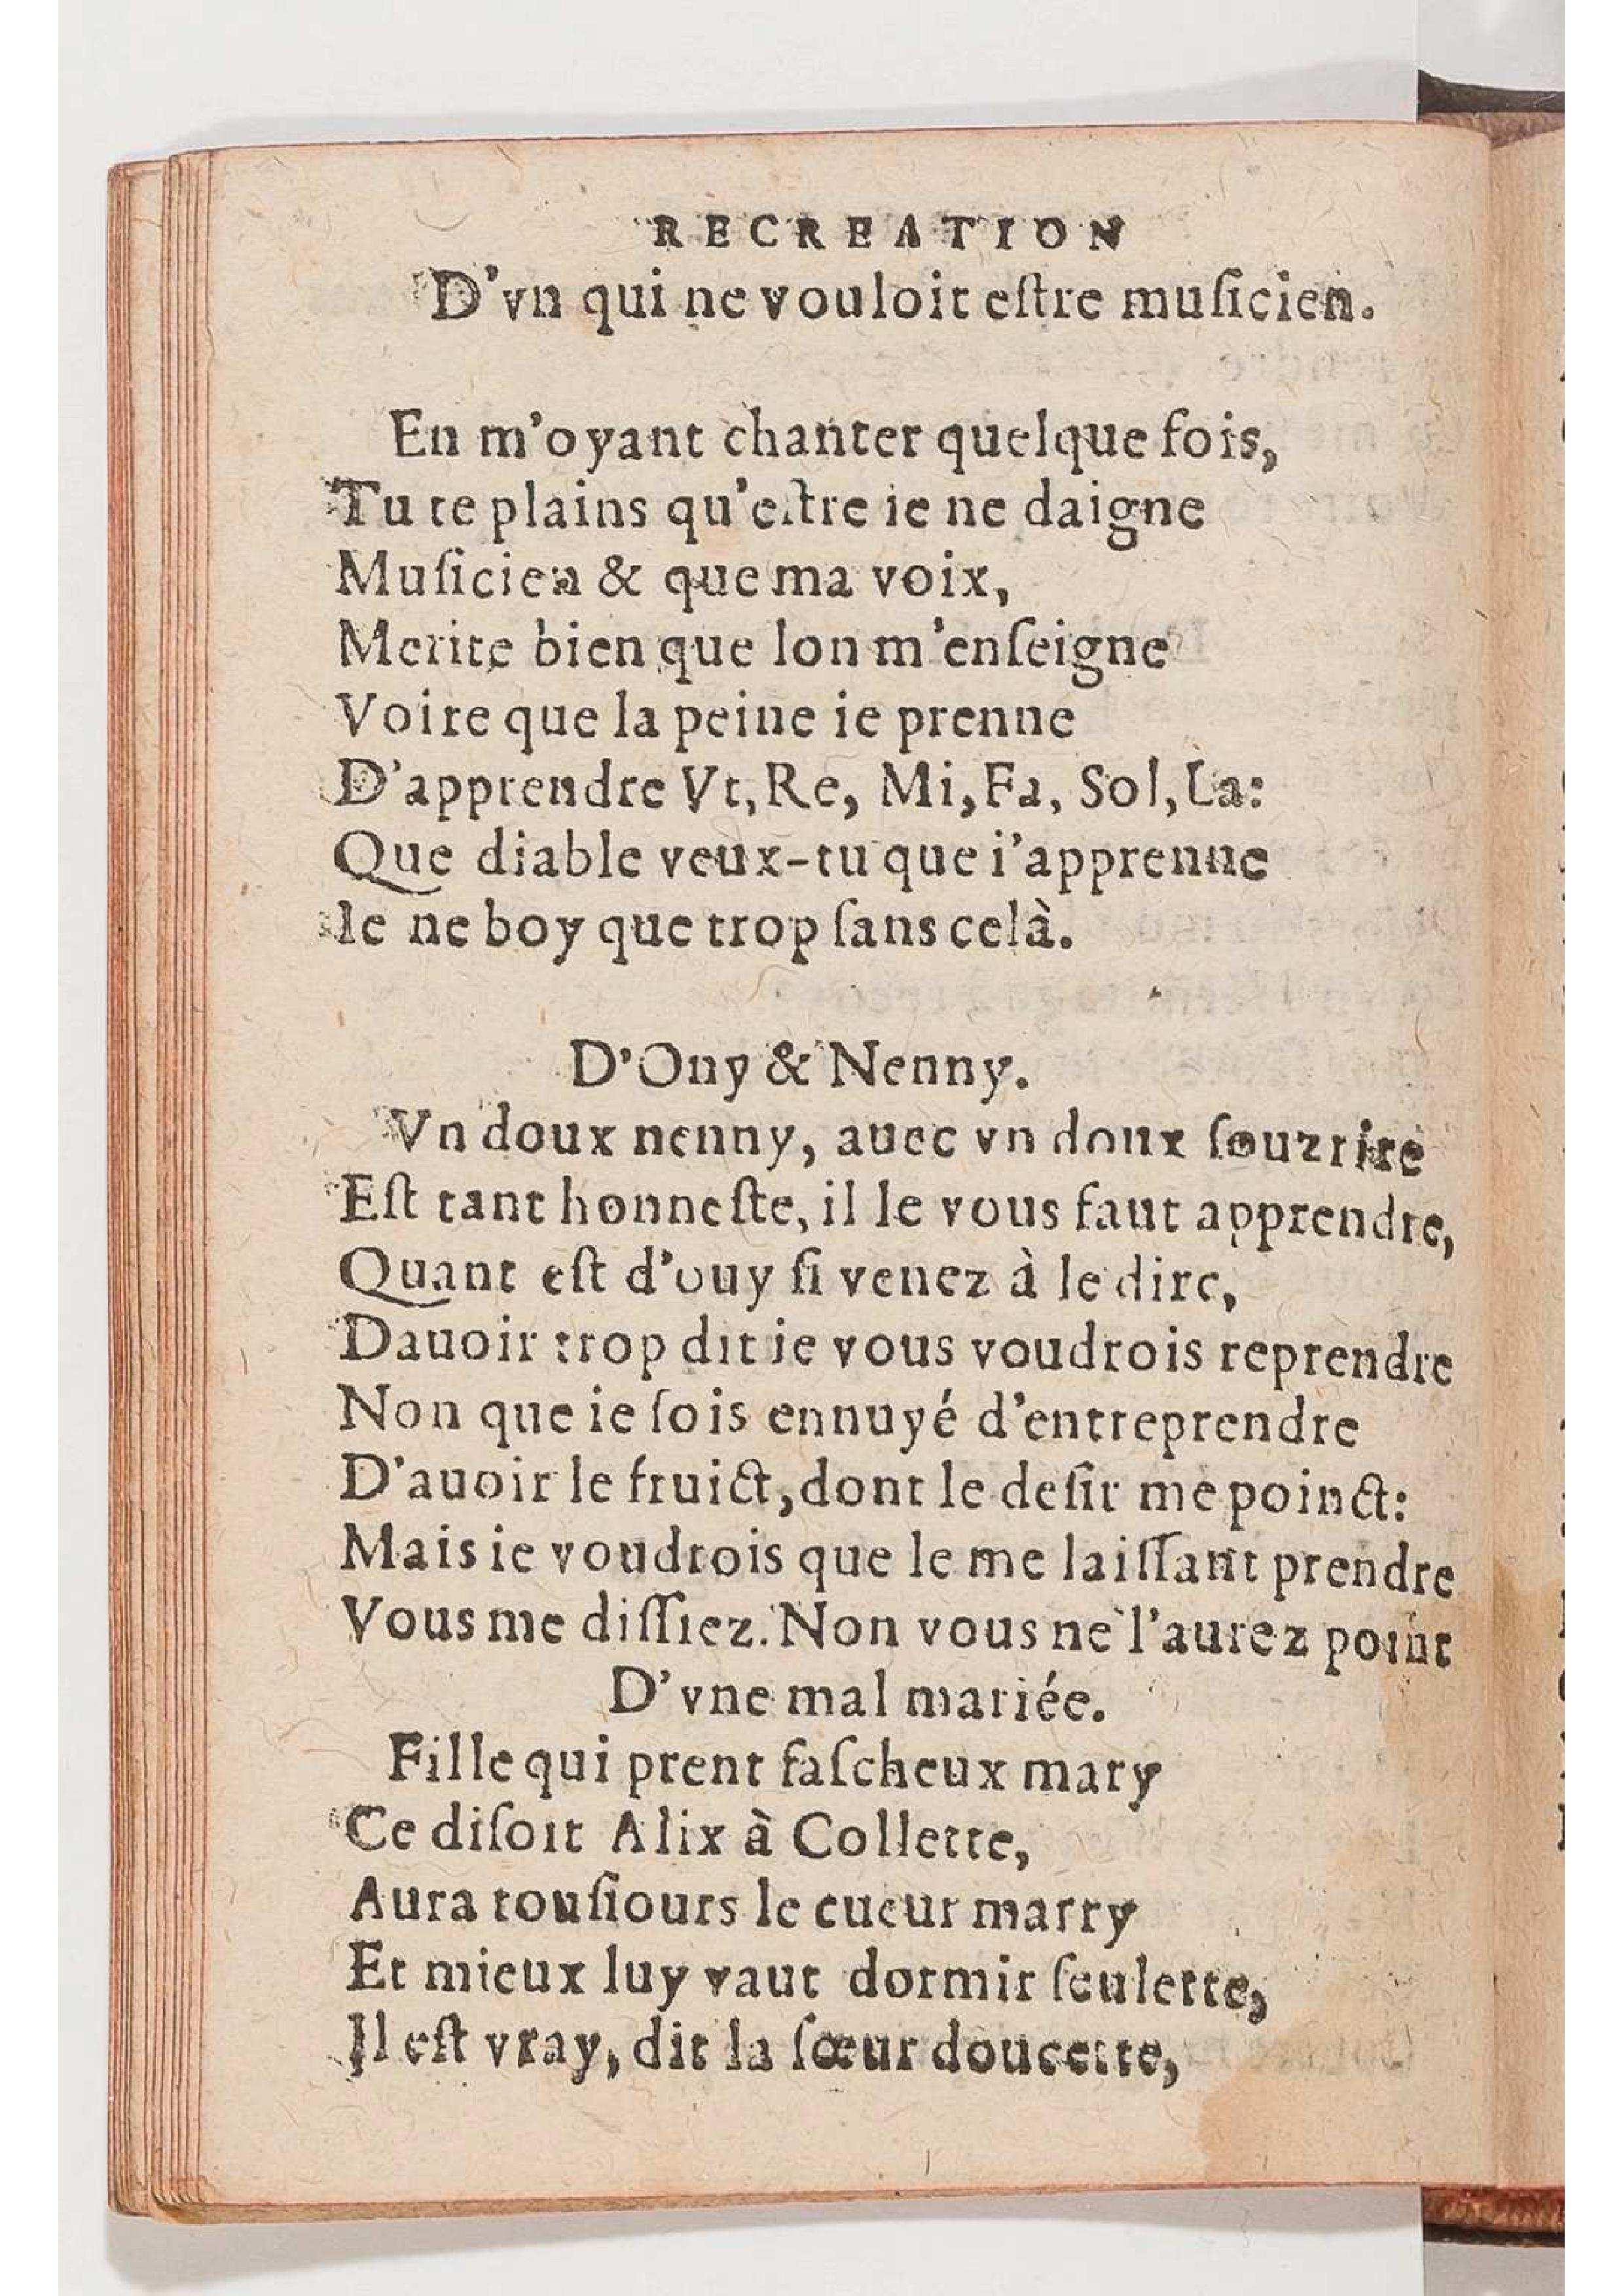 RECREATION
D'vn qui ne vouloit eſtre muſicien.
En m'oyant chanter quelque fois,
Tu te plains qu'eſtre ie ne daigne
Muſicien & que ma voix,
Merite bien que lon m'enſeigne
Voire que la peine ie prenne
D'apprendre Vt, Re, Mi, Fa, Sol, La:
Que diable veux-tu que i'apprenne
Ie ne boy que trop ſans celà.
D'Ouy & Nenny.
Vn doux nenny, auec vn doux ſouzrire
Eſt tant honneſte, il le vous faut apprendre,
Quant eſt d'ouy ſi venez à le dire,
Dauoir trop dit ie vous voudrois reprendre
Non que ie ſois ennuyé d'entreprendre
D'auoir le fruict, dont le deſir me poinct:
Mais ie voudrois que le me laiſſant prendre
Vous me diſſiez. Non vous ne l'aurez point
D'vne mal mariée.
Fille qui prent faſcheux mary
Ce diſoit Alix à Collette,
Aura touſiours le cueur marry
Et mieux luy vaut dormir ſeulette,
Il eſt vray, dit la ſœur doucette,